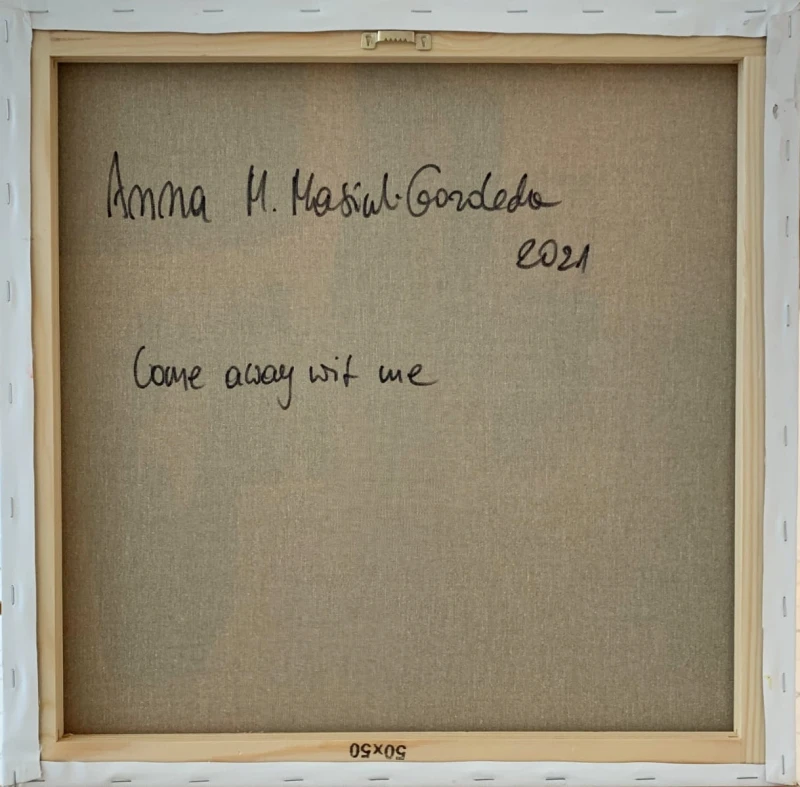 Anna M. Masiul-Gozdecka
2021
Come away wit me
50x50